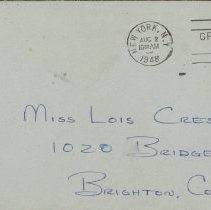 NEW YORK, N.Y.
AUG 2
1948
MISS LOIS CRES
1020 BRIDGE
BRIGHTON, CO